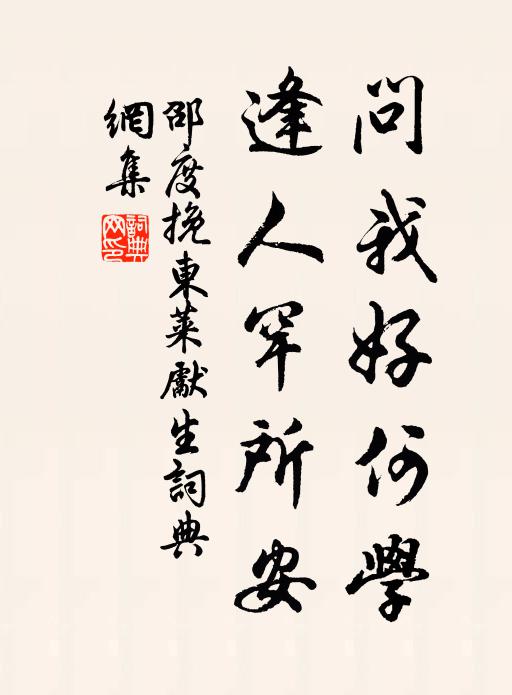 問我好何學
逢人罕所安
邵度挽東萊獻生詞典
網集
詞典網印